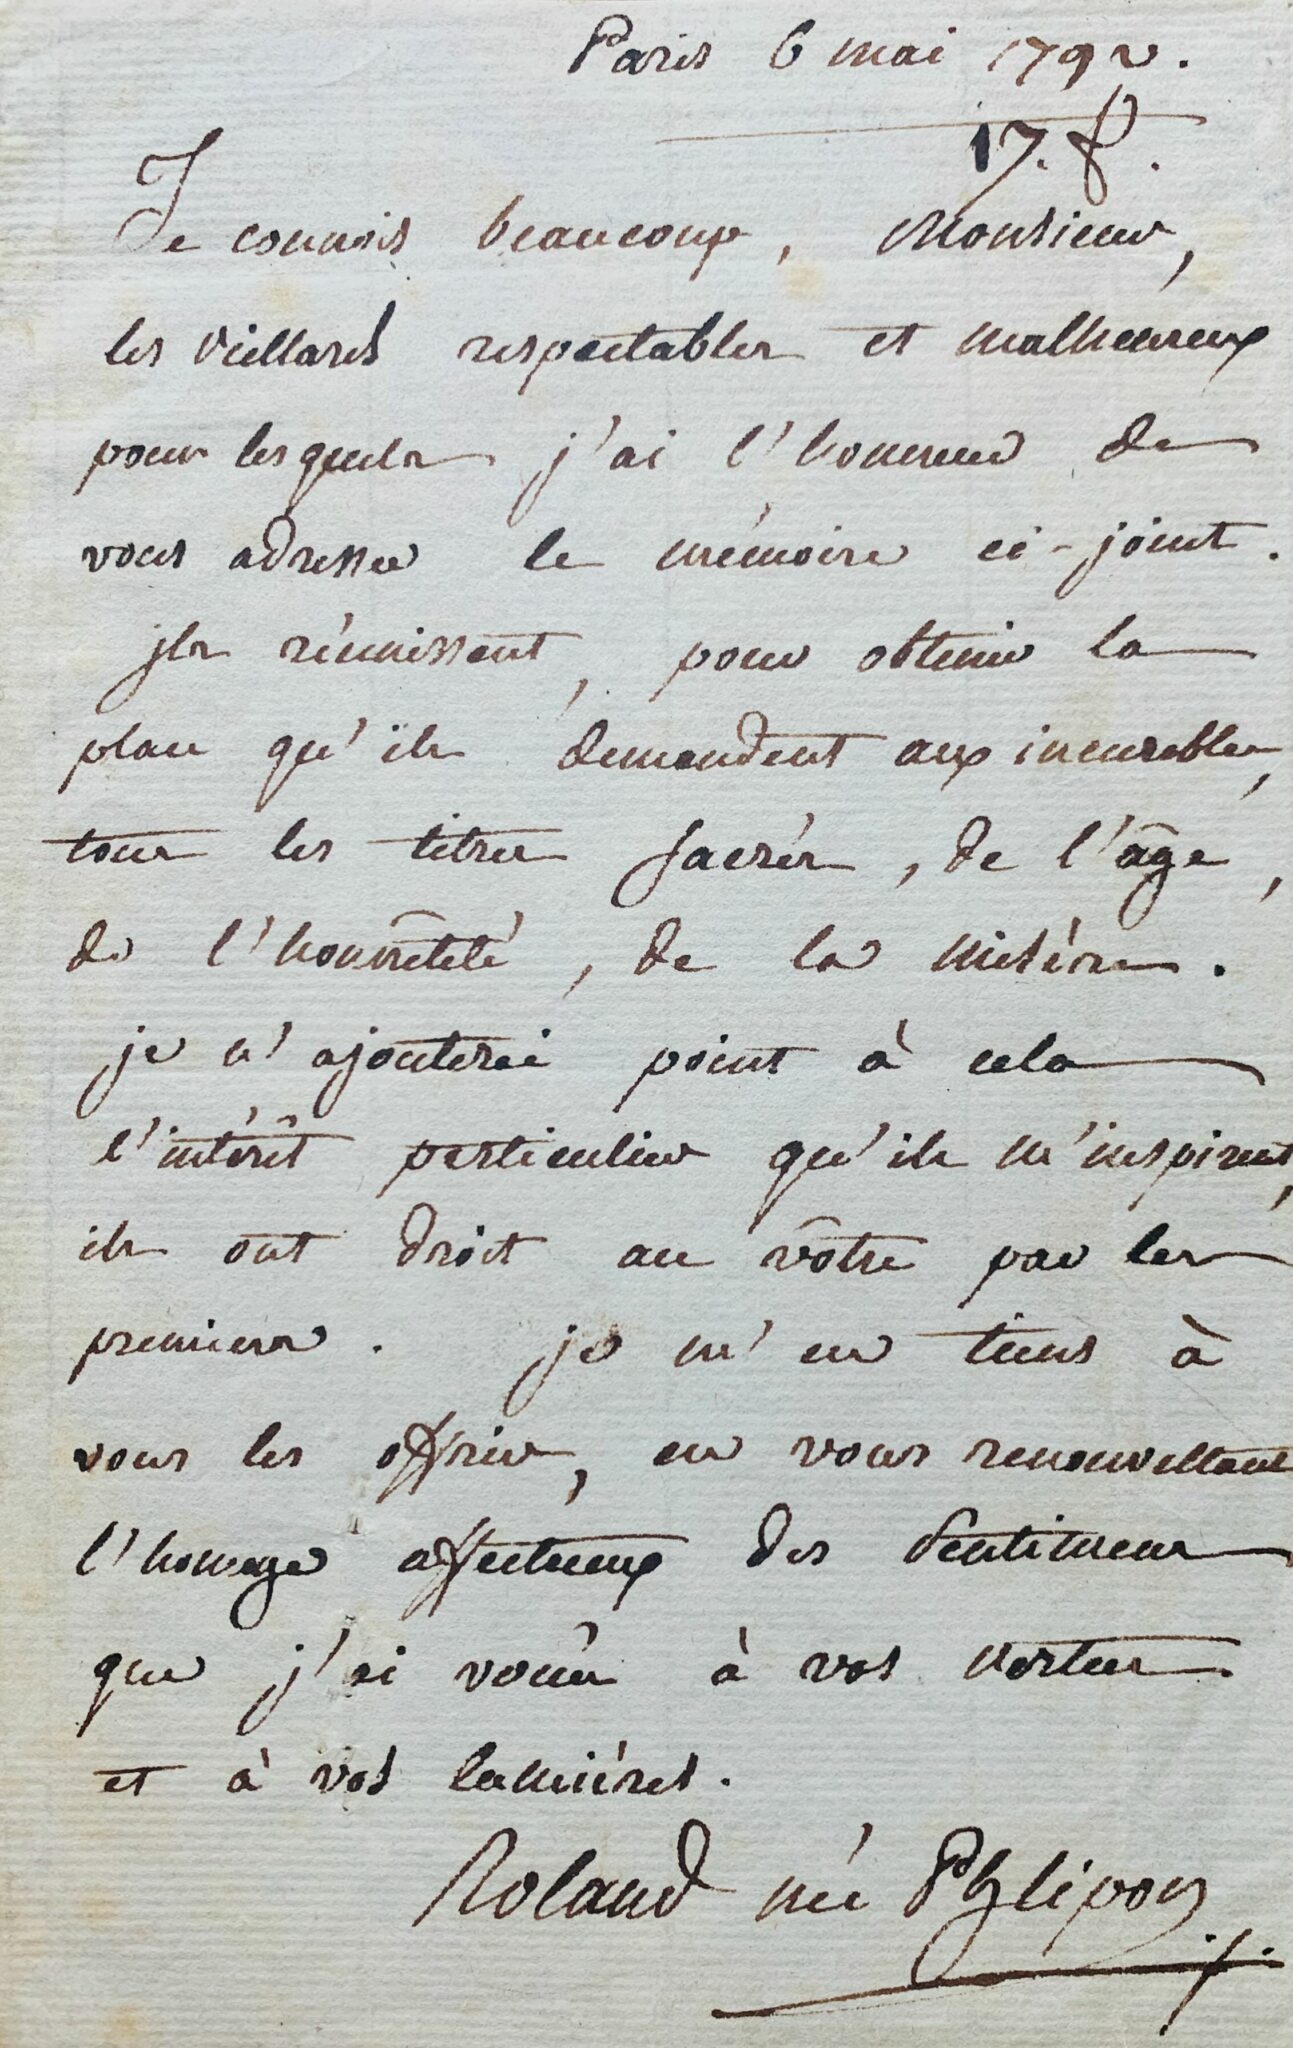 Paris 6 mai 1792.
17. P.
Je connois beaucoup, Monsieur,
les vieillards respectables et malheureux
pour lesquels j'ai l'honneur de
vous adresser le mémoire ci-joint.
jls réunissent, pour obtenir la
place qu'ils demandent aux incurables,
tous les titres sacrés, de l'âge,
de l'honnêteté, de la misère.
je n'ajouterai point à cela
l'intérêt particulier qu'ils m'inspirent,
ils ont droit au vôtre par les
premiers. je m'en tiens à
vous les offrir, en vous renouvellant
l'homage affectueux des sentimens
que j'ai voués à vos vertus
et à vos lumières.
Roland née Phlipon